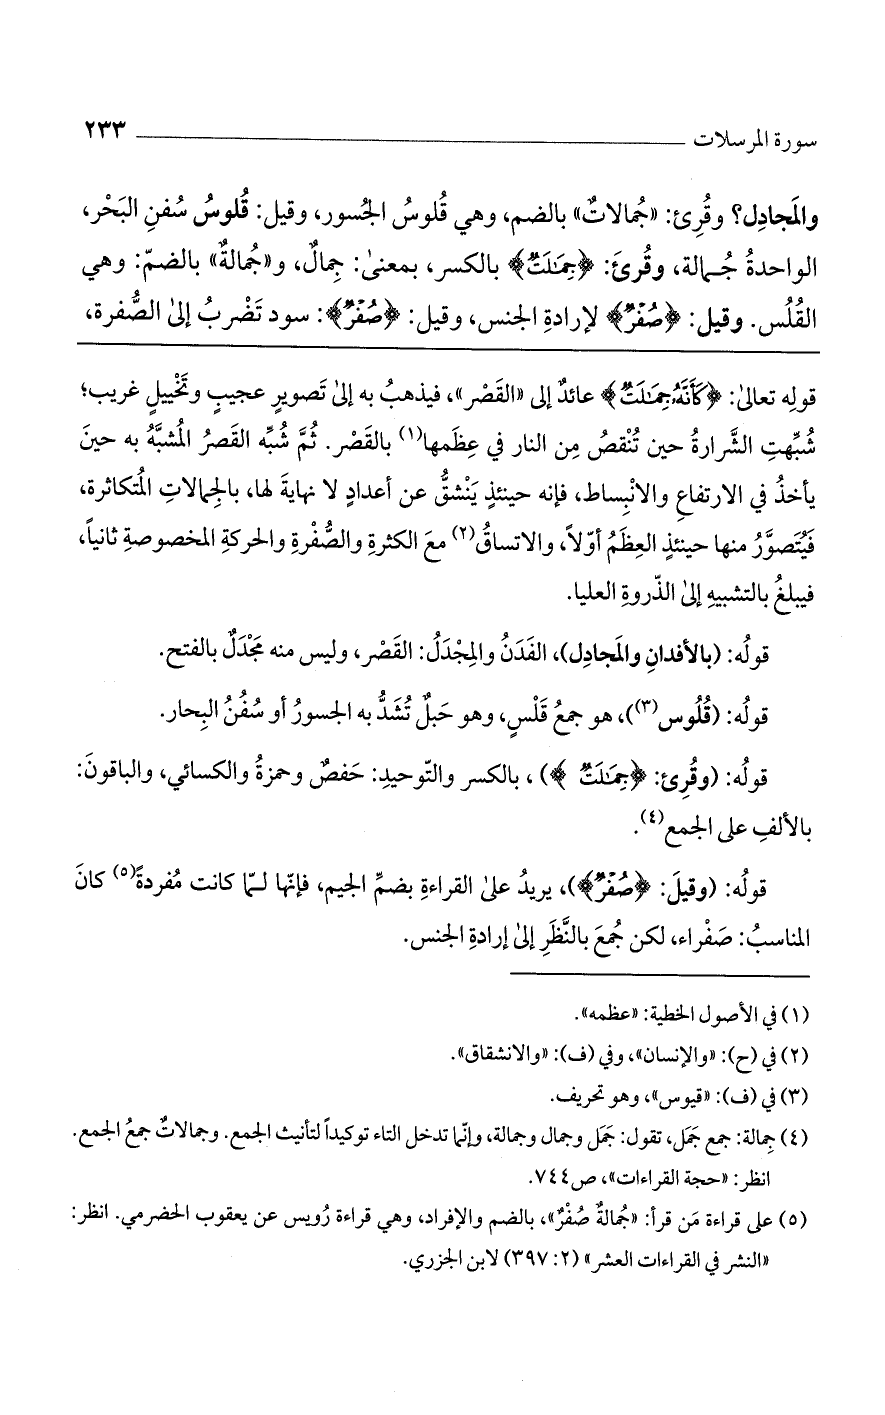 سورة المرسلات ٢٣٣
والمَجادِل؟ وقُرِئ: «جُمالاتٌ» بالضم، وهي قُلوسُ الجُسور، وقيل: قُلوسُ سُفنِ البَحْر،
الواحدةُ جُـمالة، وقُرئَ: ﴿جِمَٰلَتٌ﴾ بالكسر، بمعنىٰ: جِمالٌ، و«جُمالةٌ» بالضمّ: وهي
القُلُس. وقيل: ﴿صُفْرٌ﴾ لإرادةِ الجنس، وقيل: ﴿صُفْرٌ﴾: سود تَضْربُ إلىٰ الصُّفرة،
قولِه تعالىٰ: ﴿كَأَنَّهُۥ جِمَٰلَتٌ﴾ عائدٌ إلى «القَصْر»، فيذهبُ به إلىٰ تَصويرٍ عجيبٍ وتَخْييلٍ غريب؛
شُبِّهتِ الشَّرارةُ حين تُنْقصُ مِن النار في عِظَمها(١) بالقَصْر. ثُمَّ شُبِّه القَصرُ المُشبَّهُ به حينَ
يأخذُ في الارتفاعِ والانْبِساط، فإنه حينئذٍ يَنْشقُّ عن أعدادٍ لا نهايةَ لها، بالجِمالاتِ المُتكاثرة،
فيُتَصوَّرُ منها حينئذٍ العِظَمُ أوّلاً، والاتساقُ(٢) معَ الكثرةِ والصُّفْرةِ والحركةِ المخصوصةِ ثانياً،
فيبلغُ بالتشبيهِ إلىٰ الذّروةِ العليا.
قولُه: (بالأفدانِ والمَجادِل)، الفَدَنُ والمِجْدَلُ: القَصْر، وليس منه مَجْدَلٌ بالفتح.
قولُه: (قُلُوس(٣))، هو جمعُ قَلْسٍ، وهو حَبلٌ تُشَدُّ به الجسورُ أو سُفُنُ البِحار.
قولُه: (وقُرِئ: ﴿جِمَٰلَتٌ ﴾) ، بالكسر والتّوحيدِ: حَفصٌ وحمزةُ والكسائي، والباقونَ:
بالألفِ على الجمع(٤).
قولُه: (وقيلَ: ﴿صُفْرٌ﴾)، يريدُ علىٰ القراءةِ بضمِّ الجيم، فإنّها لـمّا كانت مُفردةً(٥) كانَ
المناسبُ: صَفْراء، لكن جُمعَ بالنَّظَرِ إلىٰ إرادةِ الجنس.
(١) في الأصول الخطية: «عظمه».
(٢) في (ح): «والإنسان»، وفي (ف): «والانشقاق».
(٣) في (ف): «قيوس»، وهو تحريف.
(٤) جِمالة: جمع جَمَل، تقول: جَمَل وجمال وجمالة، وإنّما تدخل التاء توكيداً لتأنيث الجمع. وجمالاتٌ جمعُ الجمع.
انظر: «حجة القراءات»، ص٧٤٤.
(٥) على قراءة مَن قرأ: «جُمالةٌ صُفْرٌ»، بالضم والإفراد، وهي قراءة رُويس عن يعقوب الحضرمي. انظر:
«النشر في القراءات العشر» (٢: ٣٩٧) لابن الجزري.